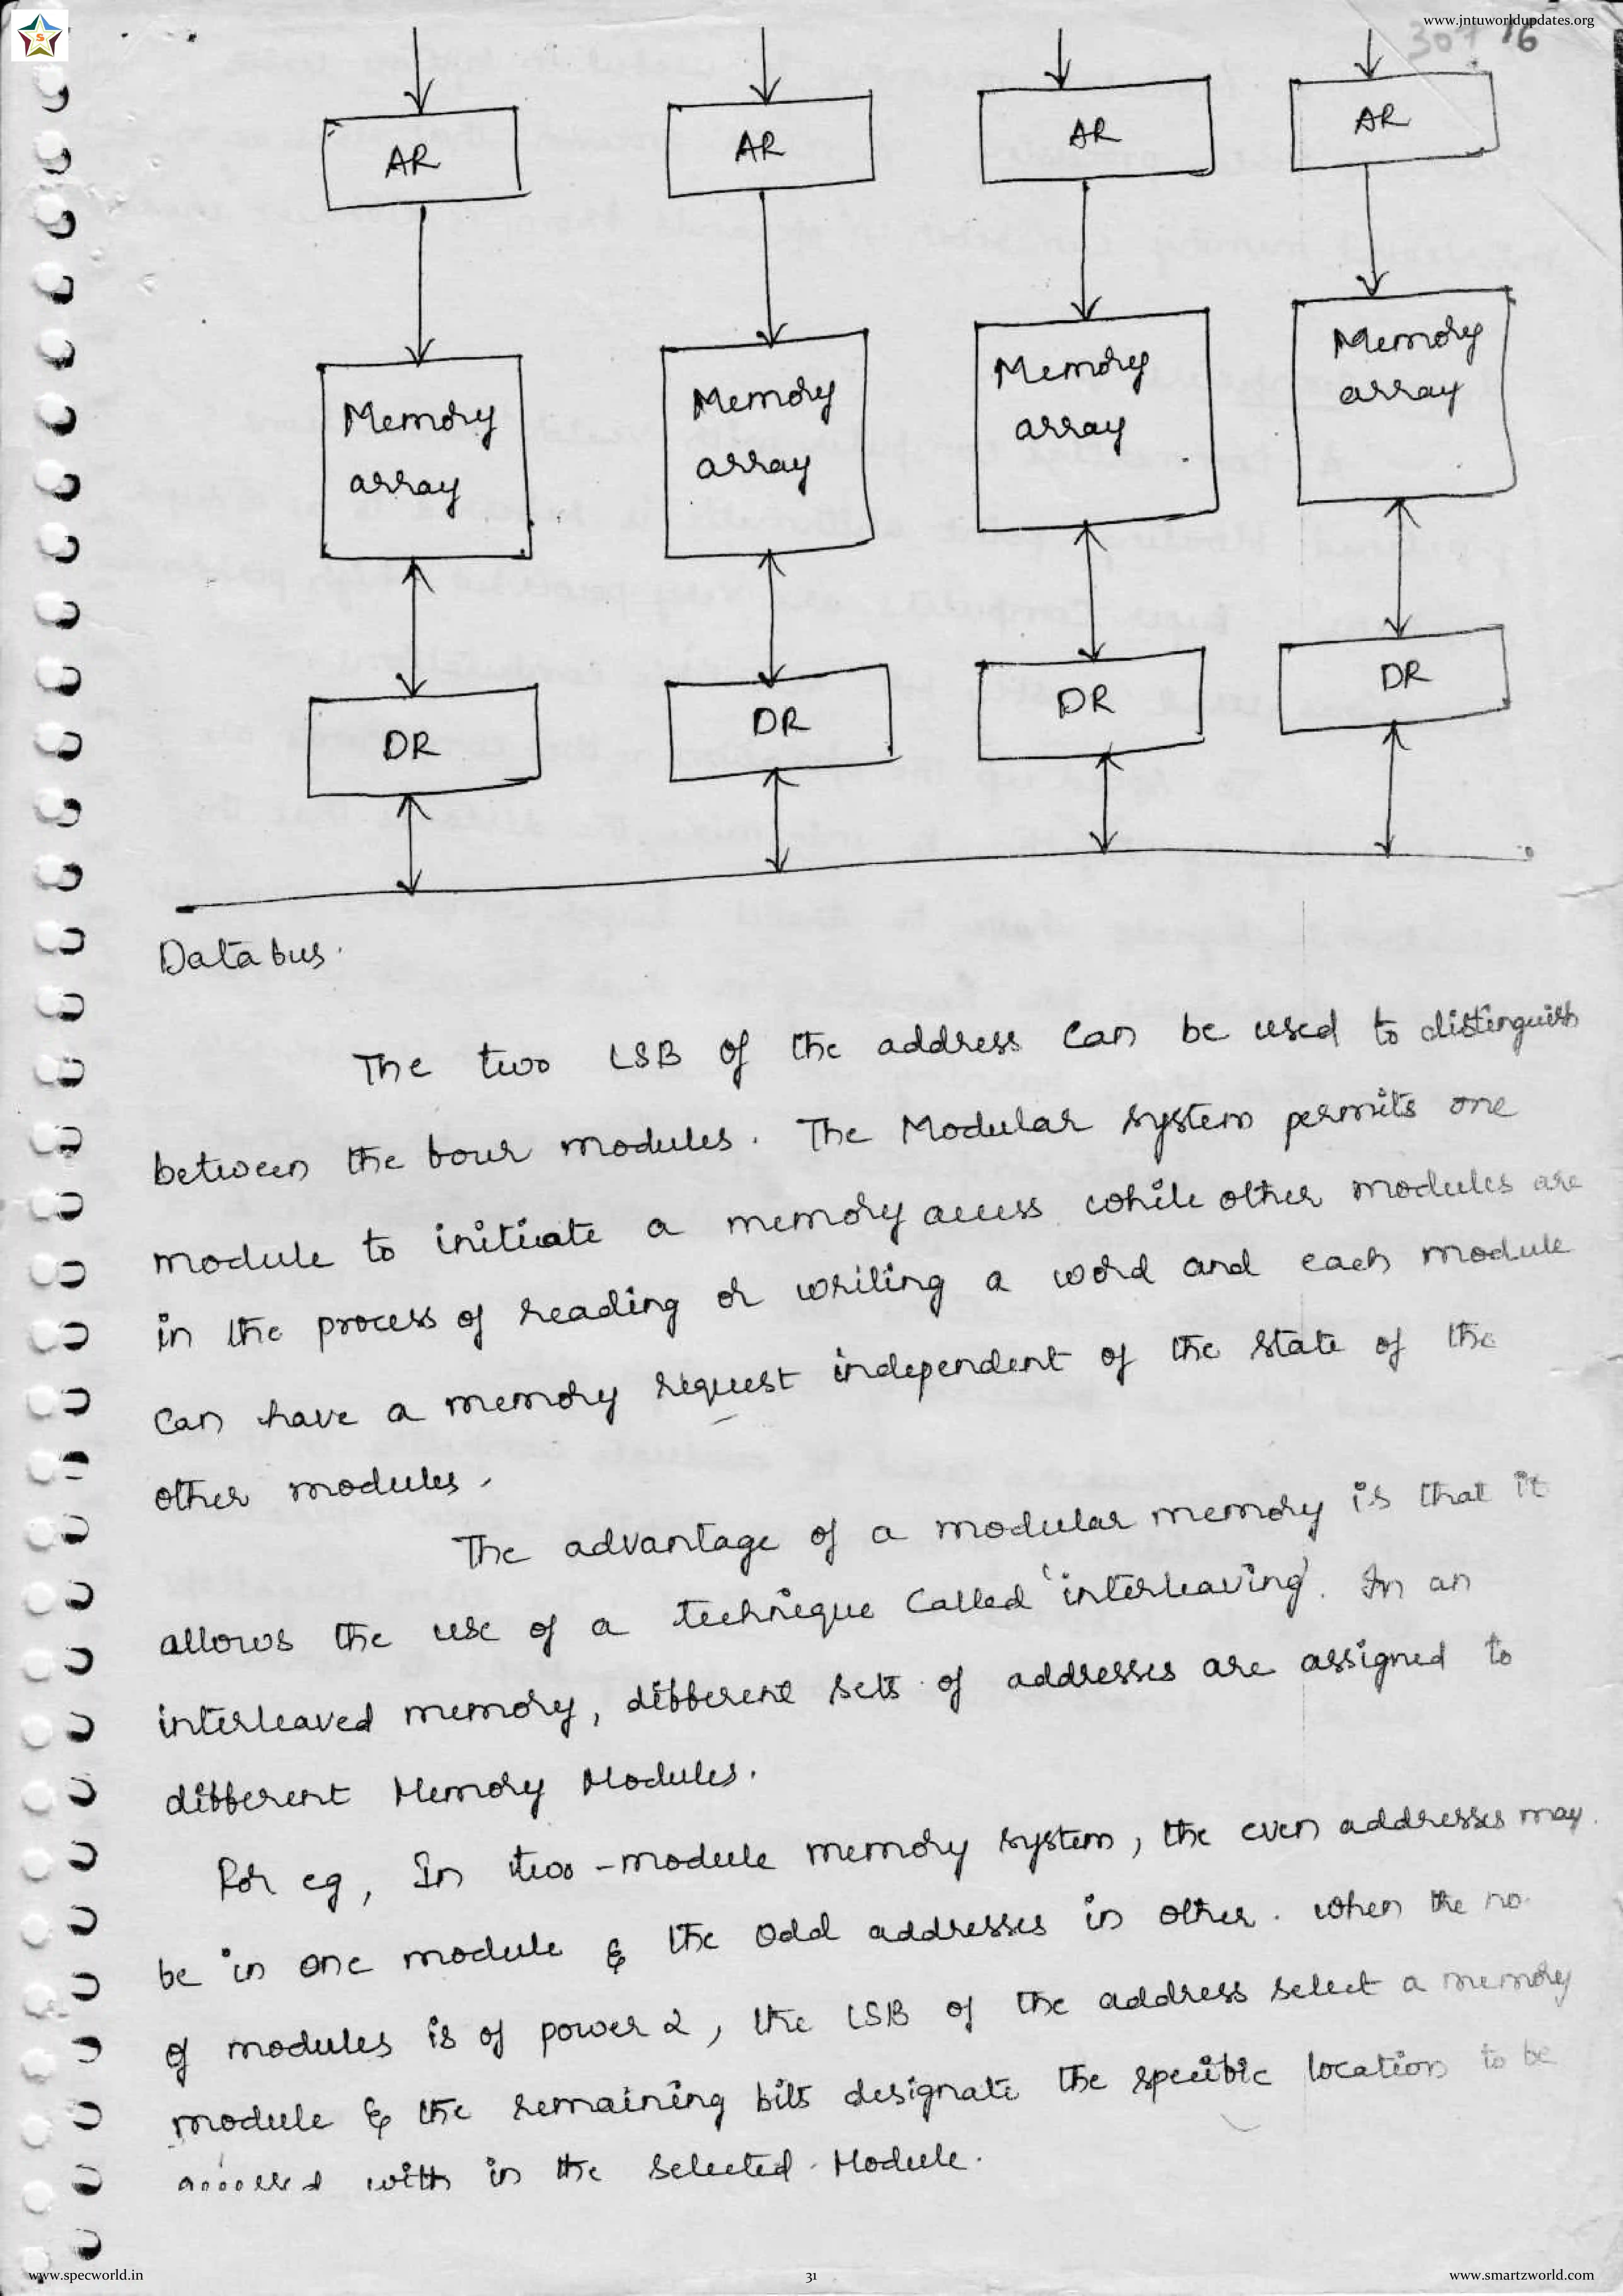 www.jntuworldupdates.org
S
307 16
AR AR AR AR
Memory Memory Memory Memory
array array array array
DR DR DR DR
Data bus.
The two LSB of the address can be used to distinguish
between the four modules. The Modular system permits one
module to initiate a memory access while other modules are
in the process of reading or writing a word and each module
can have a memory request independent of the state of the
other modules.
The advantage of a modular memory is that it
allows the use of a technique called 'interleaving'. In an
interleaved memory, different sets of addresses are assigned to
different Memory Modules.
For eg, In two-module memory system, the even addresses may
be in one module & the odd addresses in other. When the no.
of modules is of power 2, the LSB of the address select a memory
module & the remaining bits designate the specific location to be
accessed with in the selected Module.
www.specworld.in
31
www.smartzworld.com